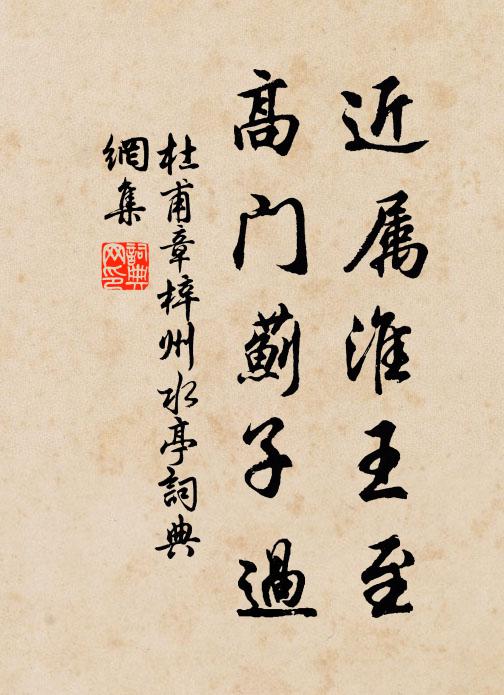 近属淮王至
高门蓟子過
杜甫章梓州水亭詞典
網集
詞典
网印